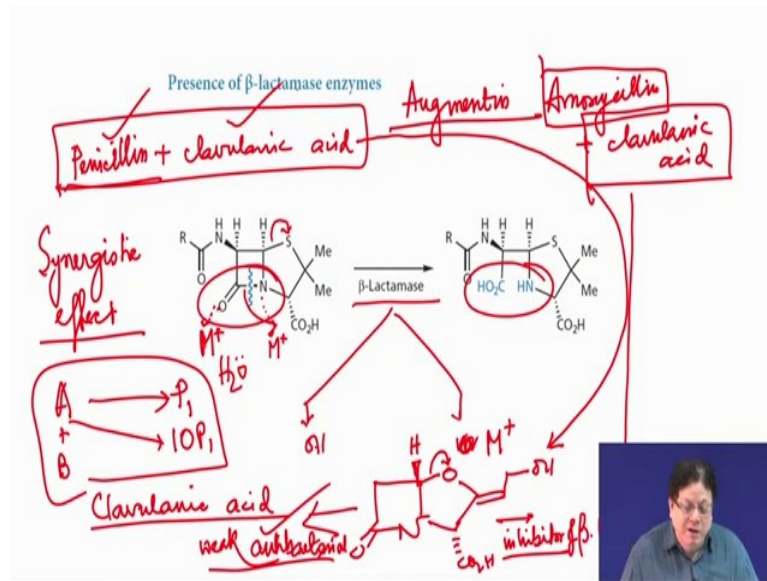 Presence of β-lactamase enzymes
Augmentin
Amoxycillin
+ clavulanic
acid
Penicillin + clavulanic acid
Synergistic
effect
R
H
N
H
H
S
Me
Me
O
N
CO₂H
M⁺
M⁺
H₂Ö
β-Lactamase
R
H
N
H
H
S
Me
Me
O
HO₂C
HN
CO₂H
A → P₁
+
B → 10P₁
OH
M⁺
H
O
OH
N
O
CO₂H
Clavulanic acid
weak antibacterial
inhibitor of β.